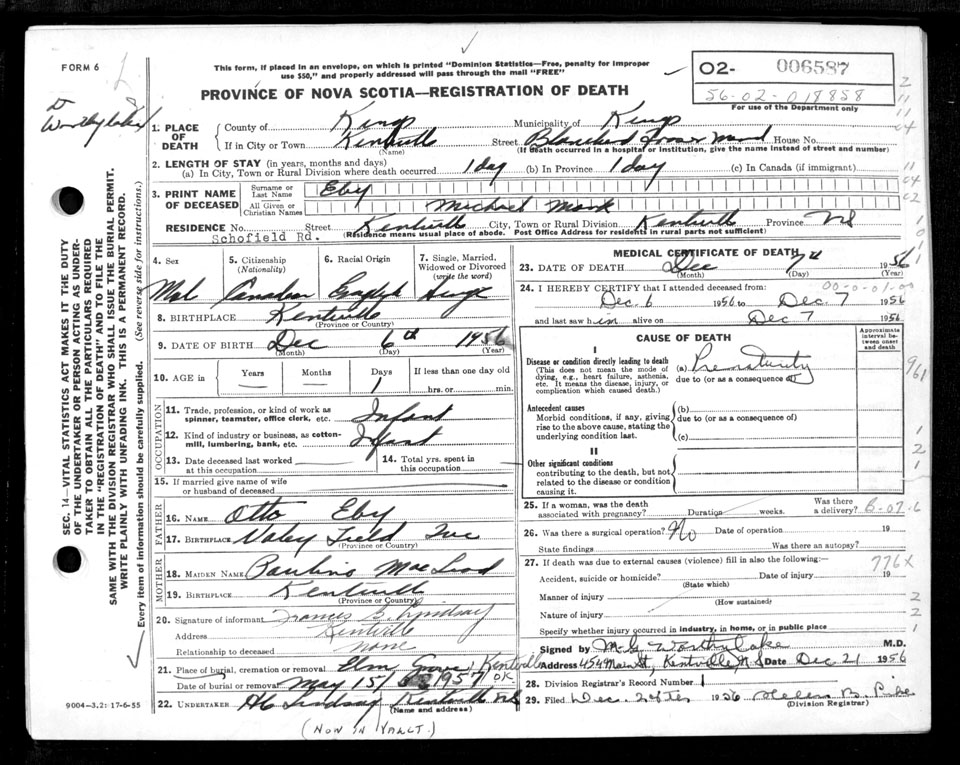 FORM 6
This form, if placed in an envelope, on which is printed "Dominion Statistics—Free, penalty for improper
use $50," and properly addressed will pass through the mail "FREE"
PROVINCE OF NOVA SCOTIA—REGISTRATION OF DEATH
02- 006587
56-02-018858
For use of the Department only
Dr Worthylake
1. PLACE OF DEATH
County of Kings Municipality of Kings
If in City or Town Kentville Street Blanchard Fraser Mem'l House No.
(Name) (If death occurred in a hospital or institution, give the name instead of street and number)
2. LENGTH OF STAY (in years, months and days)
(a) In City, Town or Rural Division where death occurred 1 day (b) In Province 1 day (c) In Canada (if immigrant)
3. PRINT NAME OF DECEASED
Surname or Last Name Eby
All Given or Christian Names Michael Mark
RESIDENCE No. Street Kentville City, Town or Rural Division Kentville Province NS
Schofield Rd. (Residence means usual place of abode. Post Office Address for residents in rural parts not sufficient)
4. Sex
5. Citizenship (Nationality)
6. Racial Origin
7. Single, Married, Widowed or Divorced (write the word)
Male Canadian English Single
8. BIRTHPLACE Kentville
(Province or Country)
9. DATE OF BIRTH Dec 6th 1956
(Month) (Day) (Year)
10. AGE in Years Months Days If less than one day
1 hrs. or min.
OCCUPATION
11. Trade, profession, or kind of work as spinner, teamster, office clerk, etc. Infant
12. Kind of industry or business, as cotton-mill, lumbering, bank, etc. Infant
13. Date deceased last worked at this occupation
14. Total yrs. spent in this occupation
15. If married give name of wife or husband of deceased
FATHER
16. NAME Otto Eby
17. BIRTHPLACE Valey Field Que
(Province or Country)
MOTHER
18. MAIDEN NAME Pauline MacLeod
19. BIRTHPLACE Kentville
(Province or Country)
20. Signature of informant Francis G. Lindsay
Address Kentville
Relationship to deceased none
21. Place of burial, cremation or removal Elm Grove Kentville
Date of burial or removal May 15/ 1957 OK
22. UNDERTAKER Kentville NS
(Name and address)
9004-3.2: 17-6-55
(NON IN VAULT.)
MEDICAL CERTIFICATE OF DEATH
23. DATE OF DEATH Dec 7th 1956
(Month) (Day) (Year)
24. I HEREBY CERTIFY that I attended deceased from: 00-0-01-00
Dec. 6 1956 to Dec 7 1956
and last saw him alive on Dec 7 1956
CAUSE OF DEATH
Approximate interval between onset and death
I
Disease or condition directly leading to death
(This does not mean the mode of dying, e.g., heart failure, asthenia, etc. It means the disease, injury, or complication which caused death.)
(a) Prematurity
due to (or as a consequence of)
961
Antecedent causes
Morbid conditions, if any, giving rise to the above cause, stating the underlying condition last.
(b)
due to (or as a consequence of)
(c)
II
Other significant conditions
contributing to the death, but not related to the disease or condition causing it.
25. If a woman, was the death associated with pregnancy? Duration weeks. Was there a delivery? 6-07-6
26. Was there a surgical operation? No Date of operation 19
State findings Was there an autopsy?
27. If death was due to external causes (violence) fill in also the following:—
776X
Accident, suicide or homicide? Date of injury 19
(State which)
Manner of injury
(How sustained)
Nature of injury
Specify whether injury occurred in industry, in home, or in public place
Signed by M.G. Worthylake M.D.
Address 454 Main St, Kentville N.S. Date Dec 21 1956
28. Division Registrar's Record Number 1
29. Filed Dec. 24th 1956 Helen B. Pike
(Division Registrar)
SEC. 14—VITAL STATISTICS ACT MAKES IT THE DUTY
OF THE UNDERTAKER OR PERSON ACTING AS UNDER-
TAKER TO OBTAIN ALL THE PARTICULARS REQUIRED
IN THE "REGISTRATION OF DEATH" AND TO FILE THE
SAME WITH THE DIVISION REGISTRAR WHO SHALL ISSUE THE BURIAL PERMIT.
WRITE PLAINLY WITH UNFADING INK. THIS IS A PERMANENT RECORD.
Every item of information should be carefully supplied. (See reverse side for instructions.)